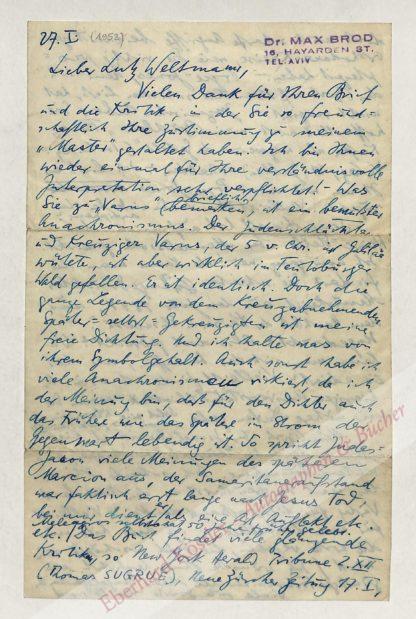 27. I (1953)
Dr. MAX BROD
16, HAYARDEN ST.
TEL AVIV
Lieber Lutz Weltmann,
Vielen Dank für Ihren Brief
und die Kritik, in der Sie so freund-
schaftlich Ihre Zustimmung zu meinem
„Master" gestaltet haben. Ich bin Ihnen
wieder einmal für Ihre verständnisvolle
Interpretation sehr verpflichtet! - Was
Sie zu „Varus" brieflich bemerken, ist ein bewußter
Anachronismus. Der Judenschlächter
und Kreuziger Varus, der 5 v. Chr. in Galiläa
wütete, ist aber wirklich im Teutoburger
Wald gefallen. Er ist identisch. Doch die
ganze Legende von dem Kreuzabnehmenden
Später-selbst-Gekreuzigten ist meine
freie Dichtung. Und ich halte was von
ihrem Symbolgehalt. Auch sonst habe ich
viele Anachronismen riskiert, da ich
der Meinung bin, daß für den Dichter auch
das Frühere wie das Spätere im Strom der
Gegenwart lebendig ist. So spricht Judas-
Jason viele Meinungen des späteren
Marcion aus, der Samaritaneraufstand
war faktisch erst lange nach Jesus Tod
bei mir dient er als eine Art Auftakt etc.
Meleagros
etc. / Das Buch findet viele glänzende
Kritiken, so New York Herald Tribune 2. XII
(Thomas SUGRUE), Neue Zürcher Zeitung 17. I,
Eberhard Köstler Autographen & Bücher